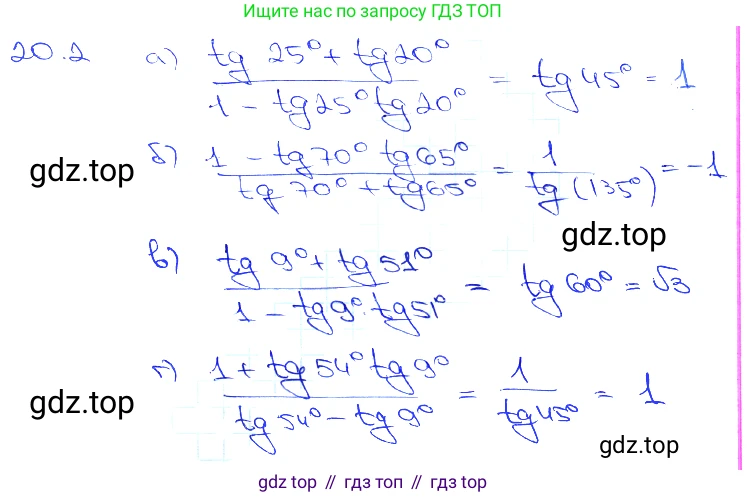 Ищите нас по запросу ГДЗ ТОП
20.2 а) (tg 25° + tg 20°) / (1 - tg 25° tg 20°) = tg 45° = 1
б) (1 - tg 70° tg 65°) / (tg 70° + tg 65°) = 1 / tg (135°) = -1
gdz.top
gdz.top
в) (tg 9° + tg 51°) / (1 - tg 9° · tg 51°) = tg 60° = √3
г) (1 + tg 54° tg 9°) / (tg 54° - tg 9°) = 1 / tg 45° = 1
gdz.top
gdz.top
gdz top // гдз топ // гдз top